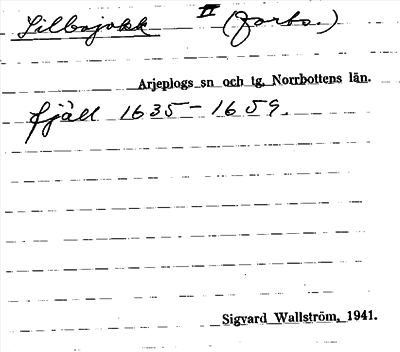 Silbojokk II (forts.)
Arjeplogs sn och tg, Norrbottens län.
fjäll 1635–1659.
Sigvard Wallström, 1941.